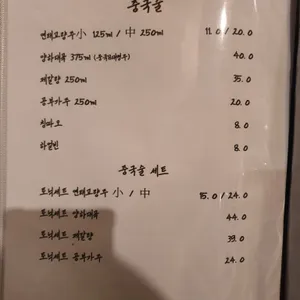 중국술
연태고량주 小 125ml / 中 250ml 11.0 / 20.0
양하대곡 375ml (중국8대명주) 40.0
제갈량 250ml 35.0
공부가주 250ml 20.0
칭따오 8.0
하얼빈 8.0
중국술 세트
토닉세트 연태고량주 小 / 中 15.0 / 24.0
토닉세트 양하대곡 44.0
토닉세트 제갈량 39.0
토닉세트 공부가주 24.0